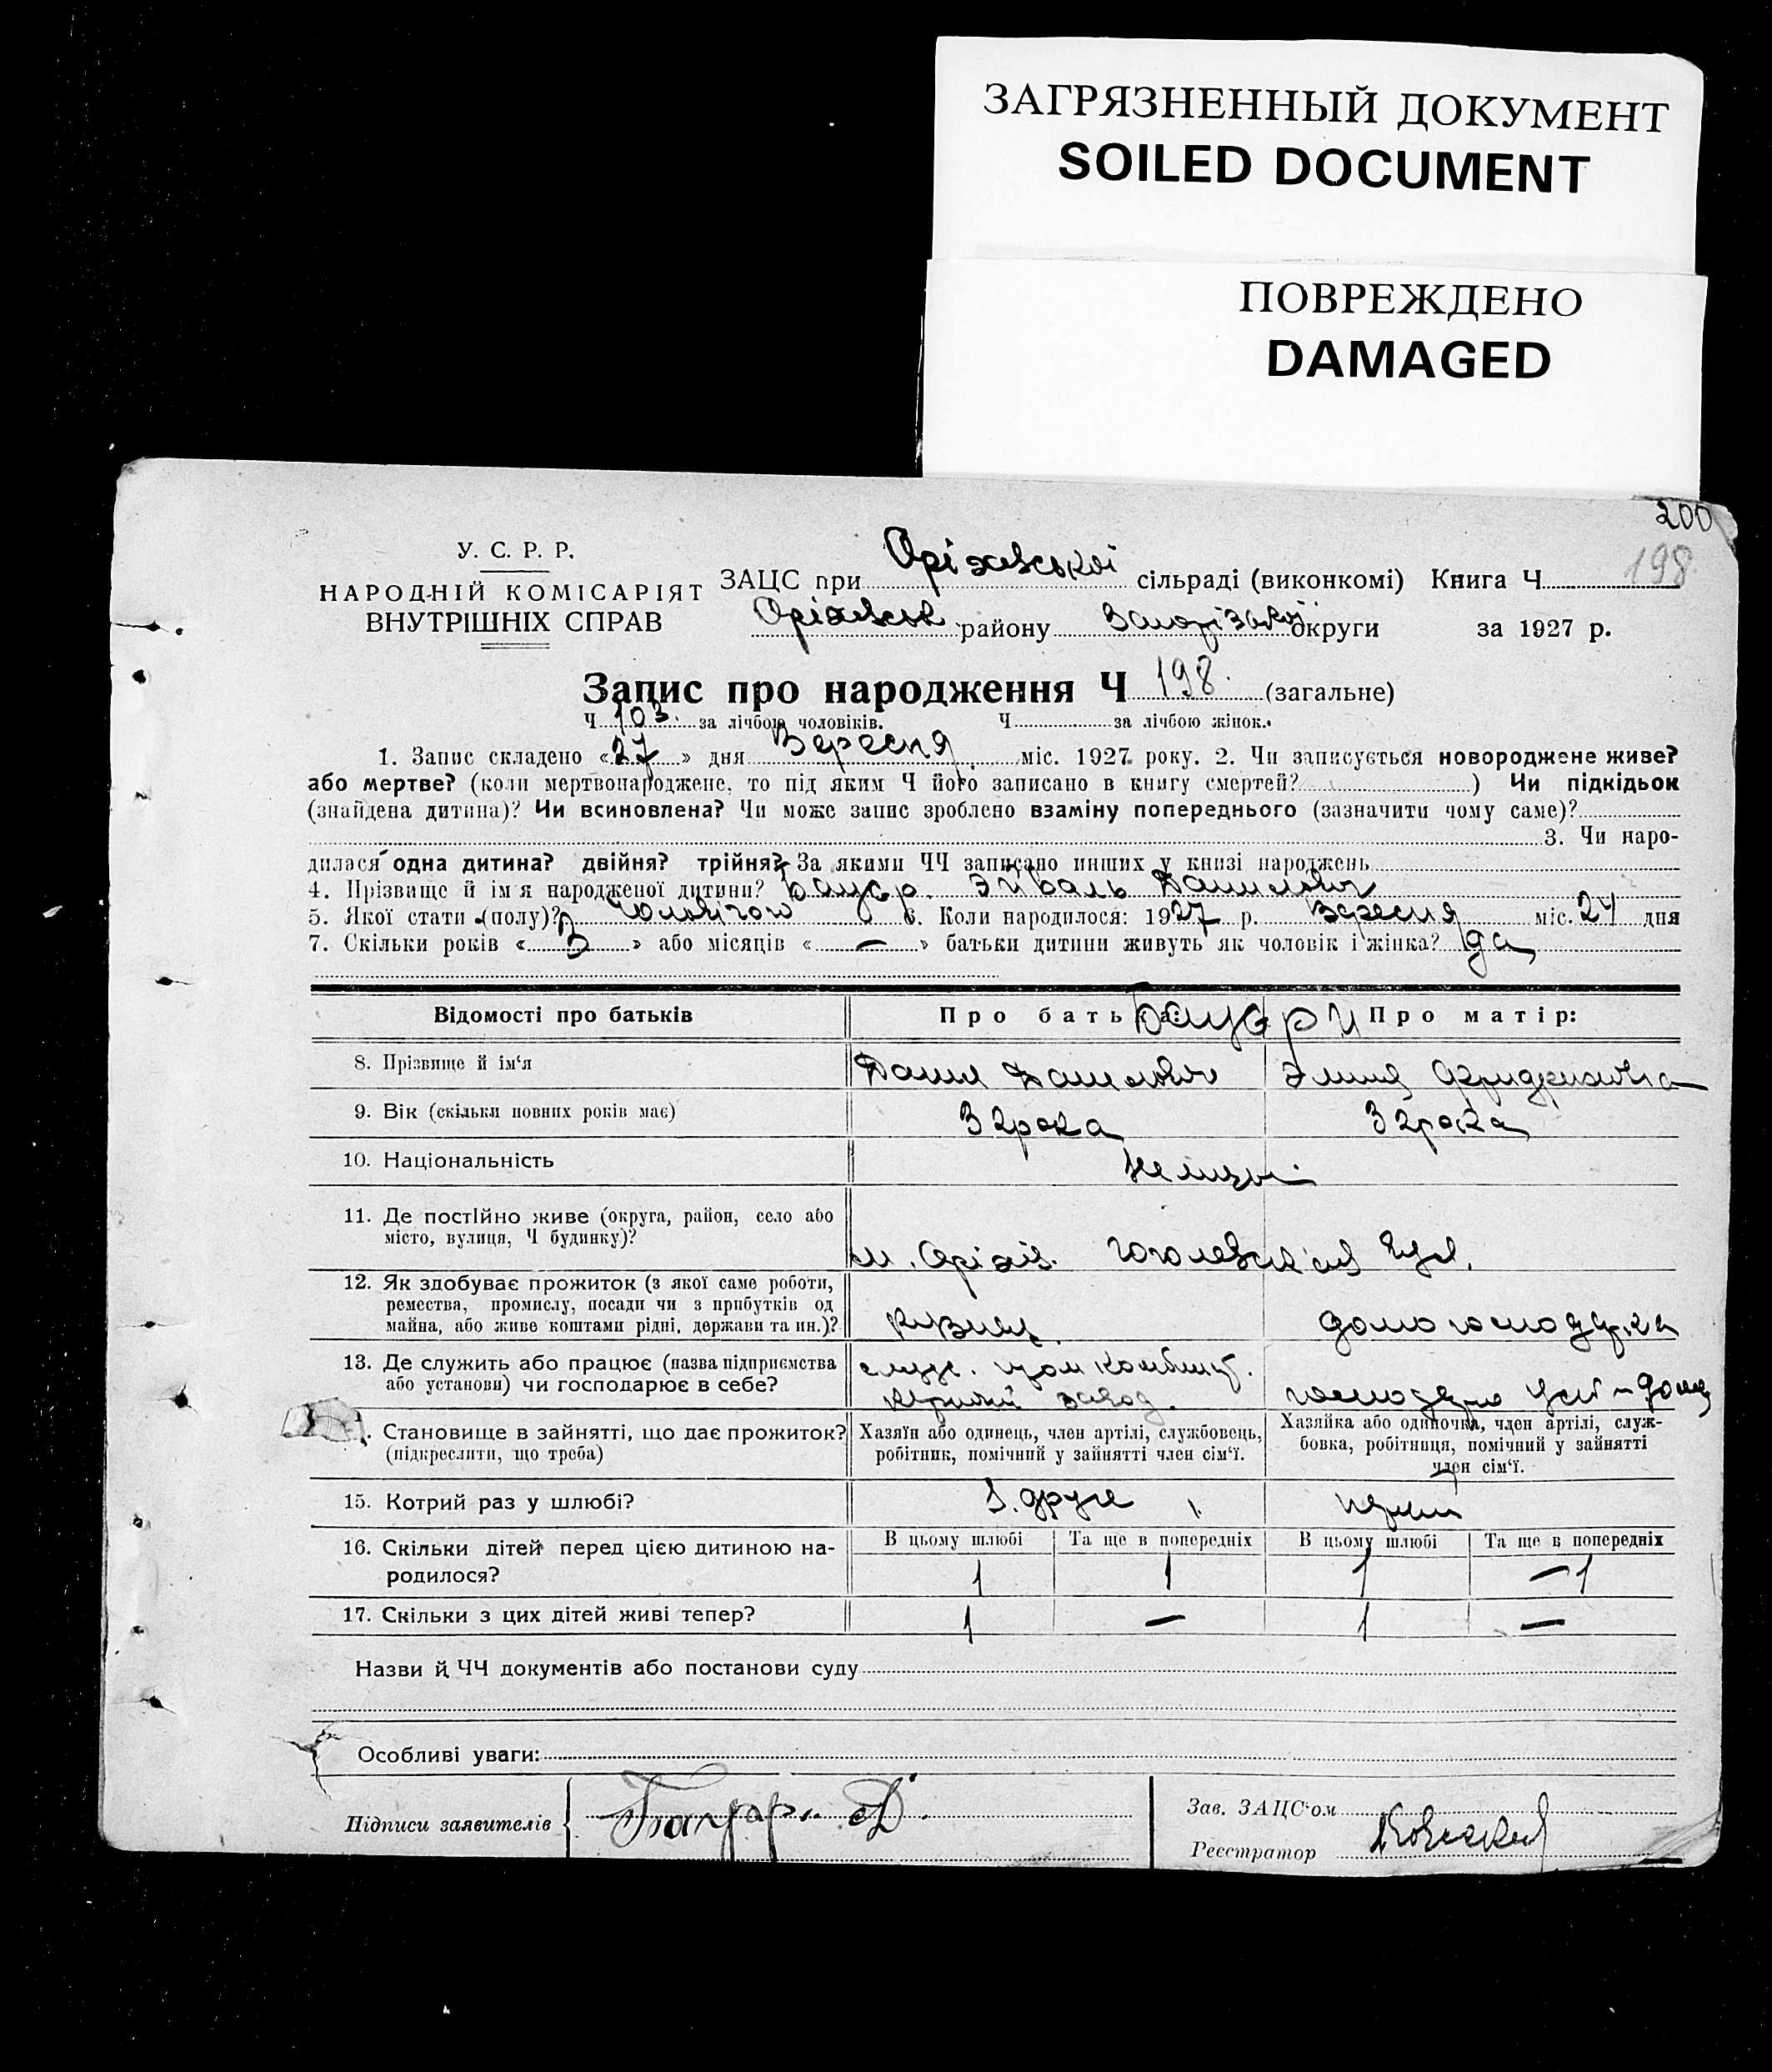 ЗАГРЯЗНЕННЫЙ ДОКУМЕНТ
SOILED DOCUMENT
ПОВРЕЖДЕНО
DAMAGED
200
198
У. С. Р. Р.
НАРОДНІЙ КОМІСАРІЯТ
ВНУТРІШНІХ СПРАВ
ЗАЦС при Оріхівській сільраді (виконкомі) Книга Ч
Оріхівськ району Запорізької округи за 1927 р.
Запис про народження Ч 198. (загальне)
Ч 103. за лічбою чоловіків. Ч за лічбою жінок.
1. Запис складено «27» дня Вересня міс. 1927 року. 2. Чи записується новороджене живе?
або мертве? (коли мертвонароджене, то під яким Ч його записано в книгу смертей? ) Чи підкідьок
(знайдена дитина)? Чи всиновлена? Чи може запис зроблено взаміну попереднього (зазначити чому саме)?
3. Чи наро-
дилася одна дитина? двійня? трійня? За якими ЧЧ записано инших у книзі народжень
4. Прізвище й ім'я народженої дитини? Бауер Эйвальь Данилович
5. Якої стати (полу)? Чоловічого 6. Коли народилося: 1927 р. Вересня міс. 24 дня
7. Скільки років «3» або місяців «—» батьки дитини живуть як чоловік і жінка? да
Відомості про батьків Про батька: Бауери Про матір:
8. Прізвище й ім'я Данил Данилович Эмиля Фридриховна
9. Вік (скільки повних років має) 32 рока 32 рока
10. Національність Немцы
11. Де постійно живе (округа, район, село або
місто, вулиця, Ч будинку)? м. Оріхів. Гоголевская ул.
12. Як здобуває прожиток (з якої саме роботи,
ремества, промислу, посади чи з прибутків од
майна, або живе коштами рідні, держави та ин.)? кузнец. домогосподарка
13. Де служить або працює (назва підприємства
або установи) чи господарює в себе? завод.
. Становище в зайнятті, що дає прожиток?
(підкреслити, що треба)
Хазяїн або одинець, член артілі, службовець,
робітник, помічний у зайнятті член сім'ї.
Хазяйка або одиночка, член артілі, служ-
бовка, робітниця, помічний у зайнятті
член сім'ї.
15. Котрий раз у шлюбі? друге
16. Скільки дітей перед цією дитиною на-
родилося?
В цьому шлюбі Та ще в попередніх В цьому шлюбі Та ще в попередніх
1 1 1 —1
17. Скільки з цих дітей живі тепер? 1 — 1 —
Назви й ЧЧ документів або постанови суду
Особливі уваги:
Підписи заявителів Бауер Д.
Зав. ЗАЦС'ом
Реєстратор